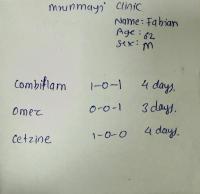 mrunmayi clinic
Name: Fabian
Age: 62
Sex: M
Combiflam 1-0-1 4 days.
Omez 0-0-1 3 days.
Cetzine 1-0-0 4 days.